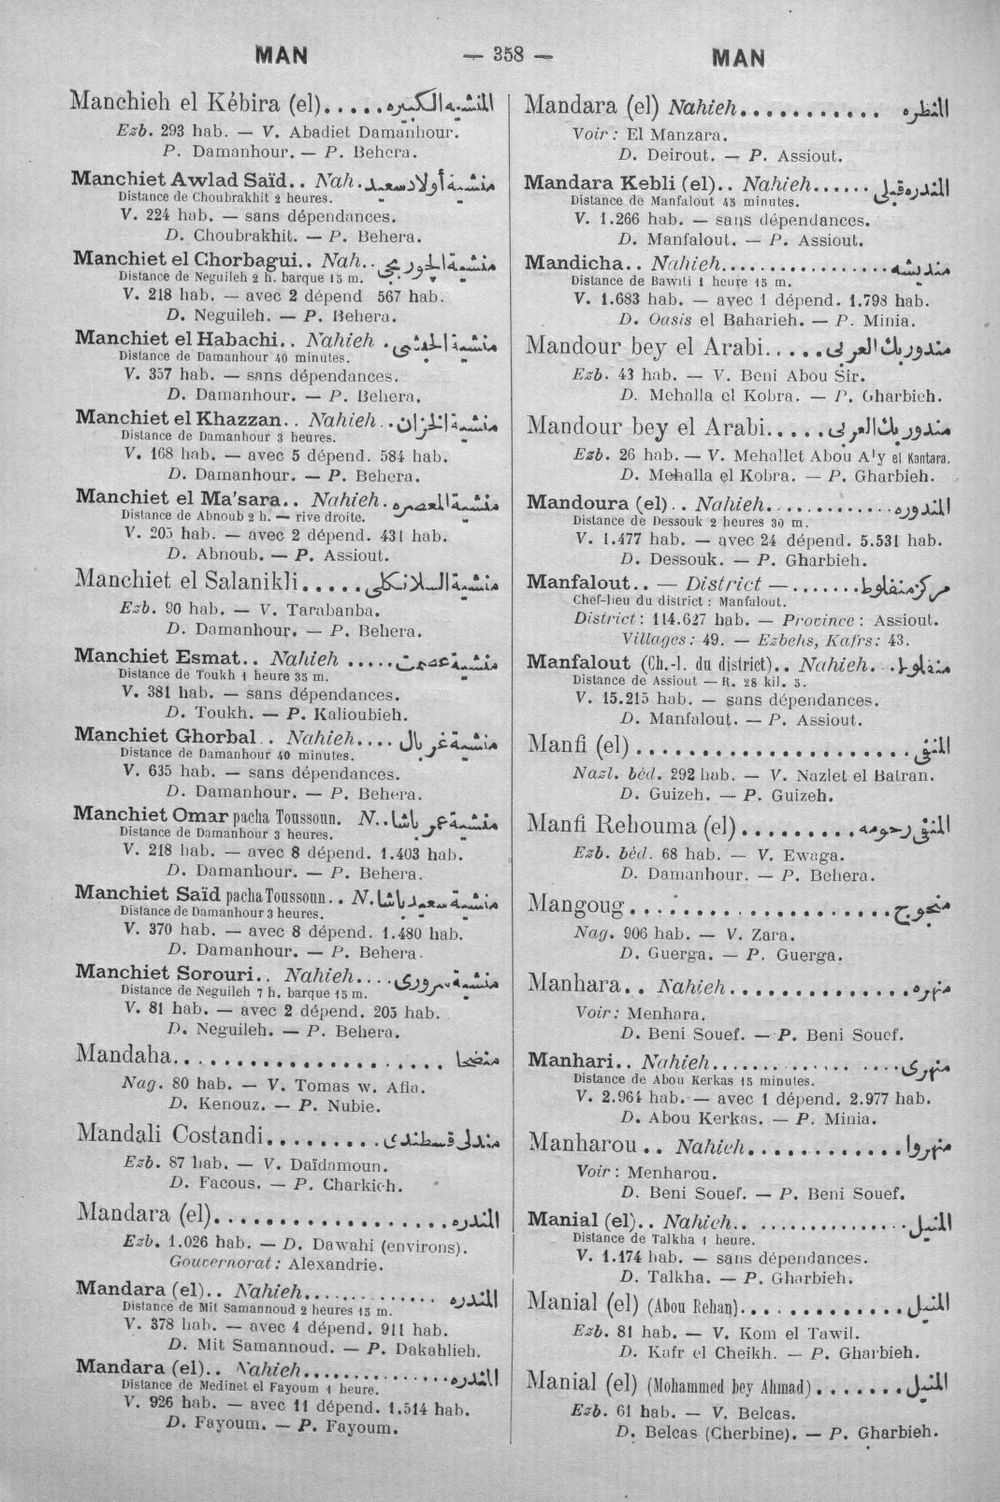 MAN — 358 — MAN
Manchieh el Kébira (el)..... المنشيه الكبيره
Ezb. 293 hab. — V. Abadiet Damanhour.
P. Damanhour. — P. Behera.
Manchiet Awlad Saïd.. Nah. منشية أولاد سعيد
Distance de Choubrakhit 2 heures.
V. 224 hab. — sans dépendances.
D. Choubrakhit. — P. Behera.
Manchiet el Chorbagui.. Nah.. منشية الجوربجى
Distance de Neguileh 2 h. barque 15 m.
V. 218 hab. — avec 2 dépend 567 hab.
D. Neguileh. — P. Behera.
Manchiet el Habachi.. Nahieh . منشية الحبشى
Distance de Damanhour 40 minutes.
V. 357 hab. — sans dépendances.
D. Damanhour. — P. Behera.
Manchiet el Khazzan.. Nahieh .. منشية الخزان
Distance de Damanhour 3 heures.
V. 168 hab. — avec 5 dépend. 584 hab.
D. Damanhour. — P. Behera.
Manchiet el Ma'sara.. Nahieh . منشية المعصره
Distance de Abnoub 2 h. — rive droite.
V. 205 hab. — avec 2 dépend. 431 hab.
D. Abnoub. — P. Assiout.
Manchiet el Salanikli..... منشية السلانكلى
Ezb. 90 hab. — V. Tarabanba.
D. Damanhour. — P. Behera.
Manchiet Esmat.. Nahieh ..... منشية عصمت
Distance de Toukh 1 heure 35 m.
V. 381 hab. — sans dépendances.
D. Toukh. — P. Kalioubieh.
Manchiet Ghorbal.. Nahieh.... منشية غربال
Distance de Damanhour 40 minutes.
V. 635 hab. — sans dépendances.
D. Damanhour. — P. Behera.
Manchiet Omar pacha Toussoun. N.. منشية عمر باشا
Distance de Damanhour 3 heures.
V. 218 hab. — avec 8 dépend. 1.403 hab.
D. Damanhour. — P. Behera.
Manchiet Saïd pacha Toussoun.. N. منشية سعيد باشا
Distance de Damanhour 3 heures.
V. 370 hab. — avec 8 dépend. 1.480 hab.
D. Damanhour. — P. Behera.
Manchiet Sorouri.. Nahieh.... منشية سرورى
Distance de Neguileh 7 h. barque 15 m.
V. 81 hab. — avec 2 dépend. 205 hab.
D. Neguileh. — P. Behera.
Mandaha.................. منضحا
Nag. 80 hab. — V. Tomas w. Afia.
D. Kenouz. — P. Nubie.
Mandali Costandi......... مندلى قسطندى
Ezb. 87 hab. — V. Daïdamoun.
D. Facous. — P. Charkieh.
Mandara (el).................. المندره
Ezb. 1.026 hab. — D. Dawahi (environs).
Gouvernorat : Alexandrie.
Mandara (el).. Nahieh............. المندره
Distance de Mit Samannoud 2 heures 15 m.
V. 378 hab. — avec 4 dépend. 911 hab.
D. Mit Samannoud. — P. Dakahlieh.
Mandara (el).. Nahieh............. المندره
Distance de Medinet el Fayoum 1 heure.
V. 926 hab. — avec 11 dépend. 1.514 hab.
D. Fayoum. — P. Fayoum.
Mandara (el) Nahieh............ المنظره
Voir : El Manzara.
D. Deirout. — P. Assiout.
Mandara Kebli (el).. Nahieh...... المندره قبلى
Distance de Manfalout 45 minutes.
V. 1.266 hab. — sans dépendances.
D. Manfalout. — P. Assiout.
Mandicha.. Nahieh................ منديشه
Distance de Bawiti 1 heure 15 m.
V. 1.683 hab. — avec 1 dépend. 1.798 hab.
D. Oasis el Baharieh. — P. Minia.
Mandour bey el Arabi..... مندور بك العربى
Ezb. 43 hab. — V. Beni Abou Sir.
D. Mehalla el Kobra. — P. Gharbieh.
Mandour bey el Arabi..... مندور بك العربى
Ezb. 26 hab. — V. Mehallet Abou A'y el Kantara.
D. Mehalla el Kobra. — P. Gharbieh.
Mandoura (el).. Nahieh............. المندوره
Distance de Dessouk 2 heures 30 m.
V. 1.477 hab. — avec 24 dépend. 5.531 hab.
D. Dessouk. — P. Gharbieh.
Manfalout.. — District —....... مركز منفلوط
Chef-lieu du district : Manfalout.
District : 114.627 hab. — Province : Assiout.
Villages : 49. — Ezbehs, Kafrs : 43.
Manfalout (Ch.-l. du district).. Nahieh... منفلوط
Distance de Assiout — R. 28 kil. 5.
V. 15.215 hab. — sans dépendances.
D. Manfalout. — P. Assiout.
Manfi (el)..................... المنفى
Nazl. béd. 292 hab. — V. Nazlet el Batran.
D. Guizeh. — P. Guizeh.
Manfi Rehouma (el)......... المنفى رحومه
Ezb. béd. 68 hab. — V. Ewaga.
D. Damanhour. — P. Behera.
Mangoug..................... منجوج
Nag. 906 hab. — V. Zara.
D. Guerga. — P. Guerga.
Manhara.. Nahieh............... منهره
Voir : Menhara.
D. Beni Souef. — P. Beni Souef.
Manhari.. Nahieh................ منهرى
Distance de Abou Kerkas 15 minutes.
V. 2.964 hab. — avec 1 dépend. 2.977 hab.
D. Abou Kerkas. — P. Minia.
Manharou.. Nahieh............ منهروا
Voir : Menharou.
D. Beni Souef. — P. Beni Souef.
Manial (el).. Nahieh................ المنيل
Distance de Talkha 1 heure.
V. 1.174 hab. — sans dépendances.
D. Talkha. — P. Gharbieh.
Manial (el) (Abou Rehan)............. المنيل
Ezb. 81 hab. — V. Kom el Tawil.
D. Kafr el Cheikh. — P. Gharbieh.
Manial (el) (Mohammed bey Ahmad)....... المنيل
Ezb. 61 hab. — V. Belcas.
D. Belcas (Cherbine). — P. Gharbieh.